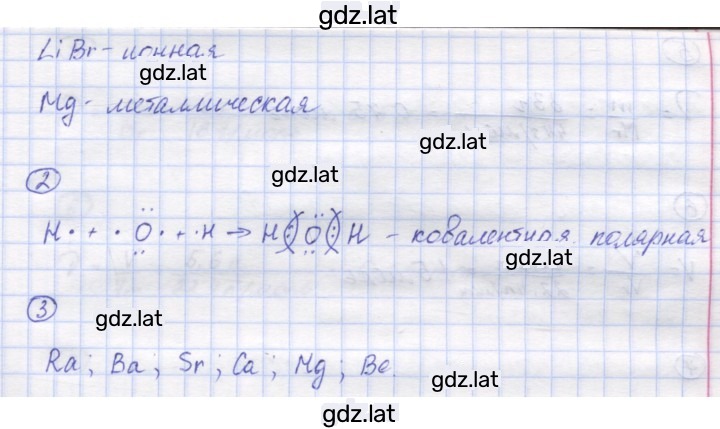 gdz.lat
LiBr - ионная
gdz.lat
Mg - металлическая
gdz.lat
gdz.lat
2
H· + ·Ö· + ·H → H(:Ö:)H - ковалентная полярная
gdz.lat
3
gdz.lat
Ra; Ba; Sr; Ca; Mg; Be.
gdz.lat
gdz.lat